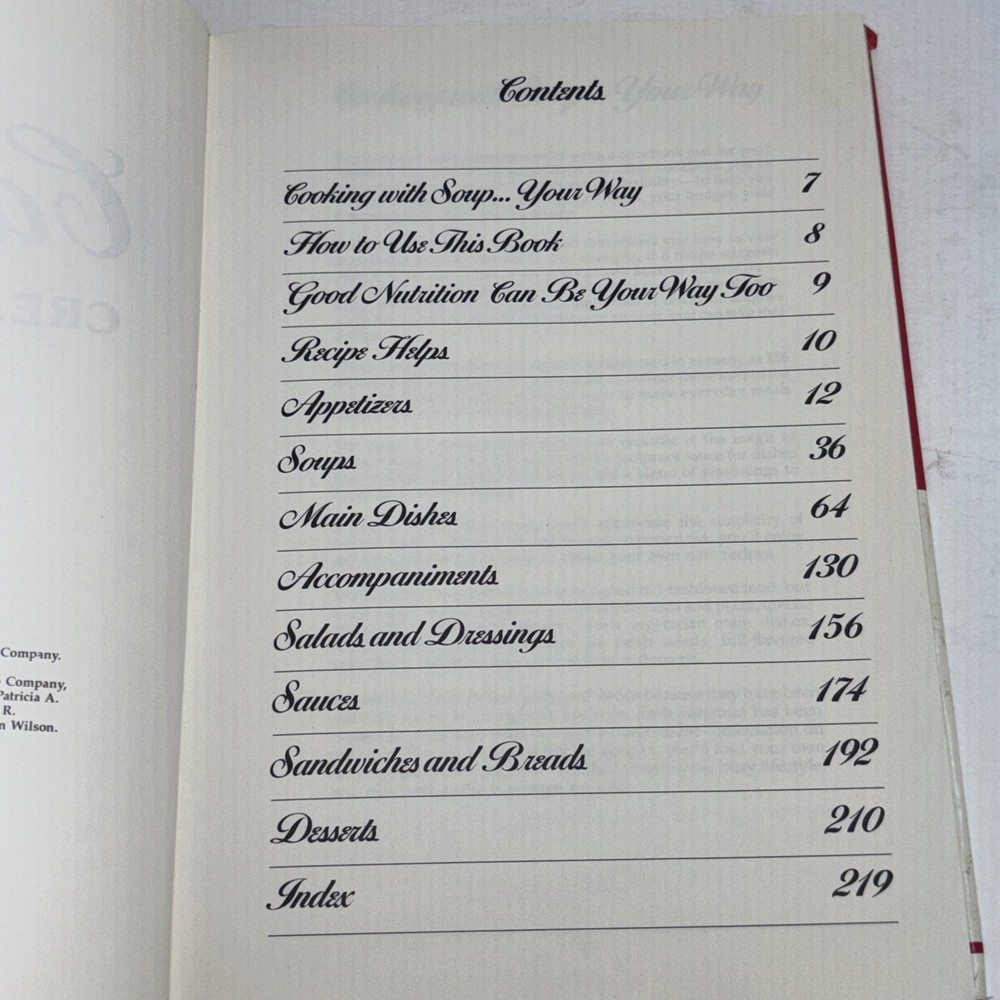 Company.
Company,
Patricia A.
R.
Wilson.
Contents
Cooking with Soup... Your Way 7
How to Use This Book 8
Good Nutrition Can Be Your Way Too 9
Recipe Helps 10
Appetizers 12
Soups 36
Main Dishes 64
Accompaniments 130
Salads and Dressings 156
Sauces 174
Sandwiches and Breads 192
Desserts 210
Index 219